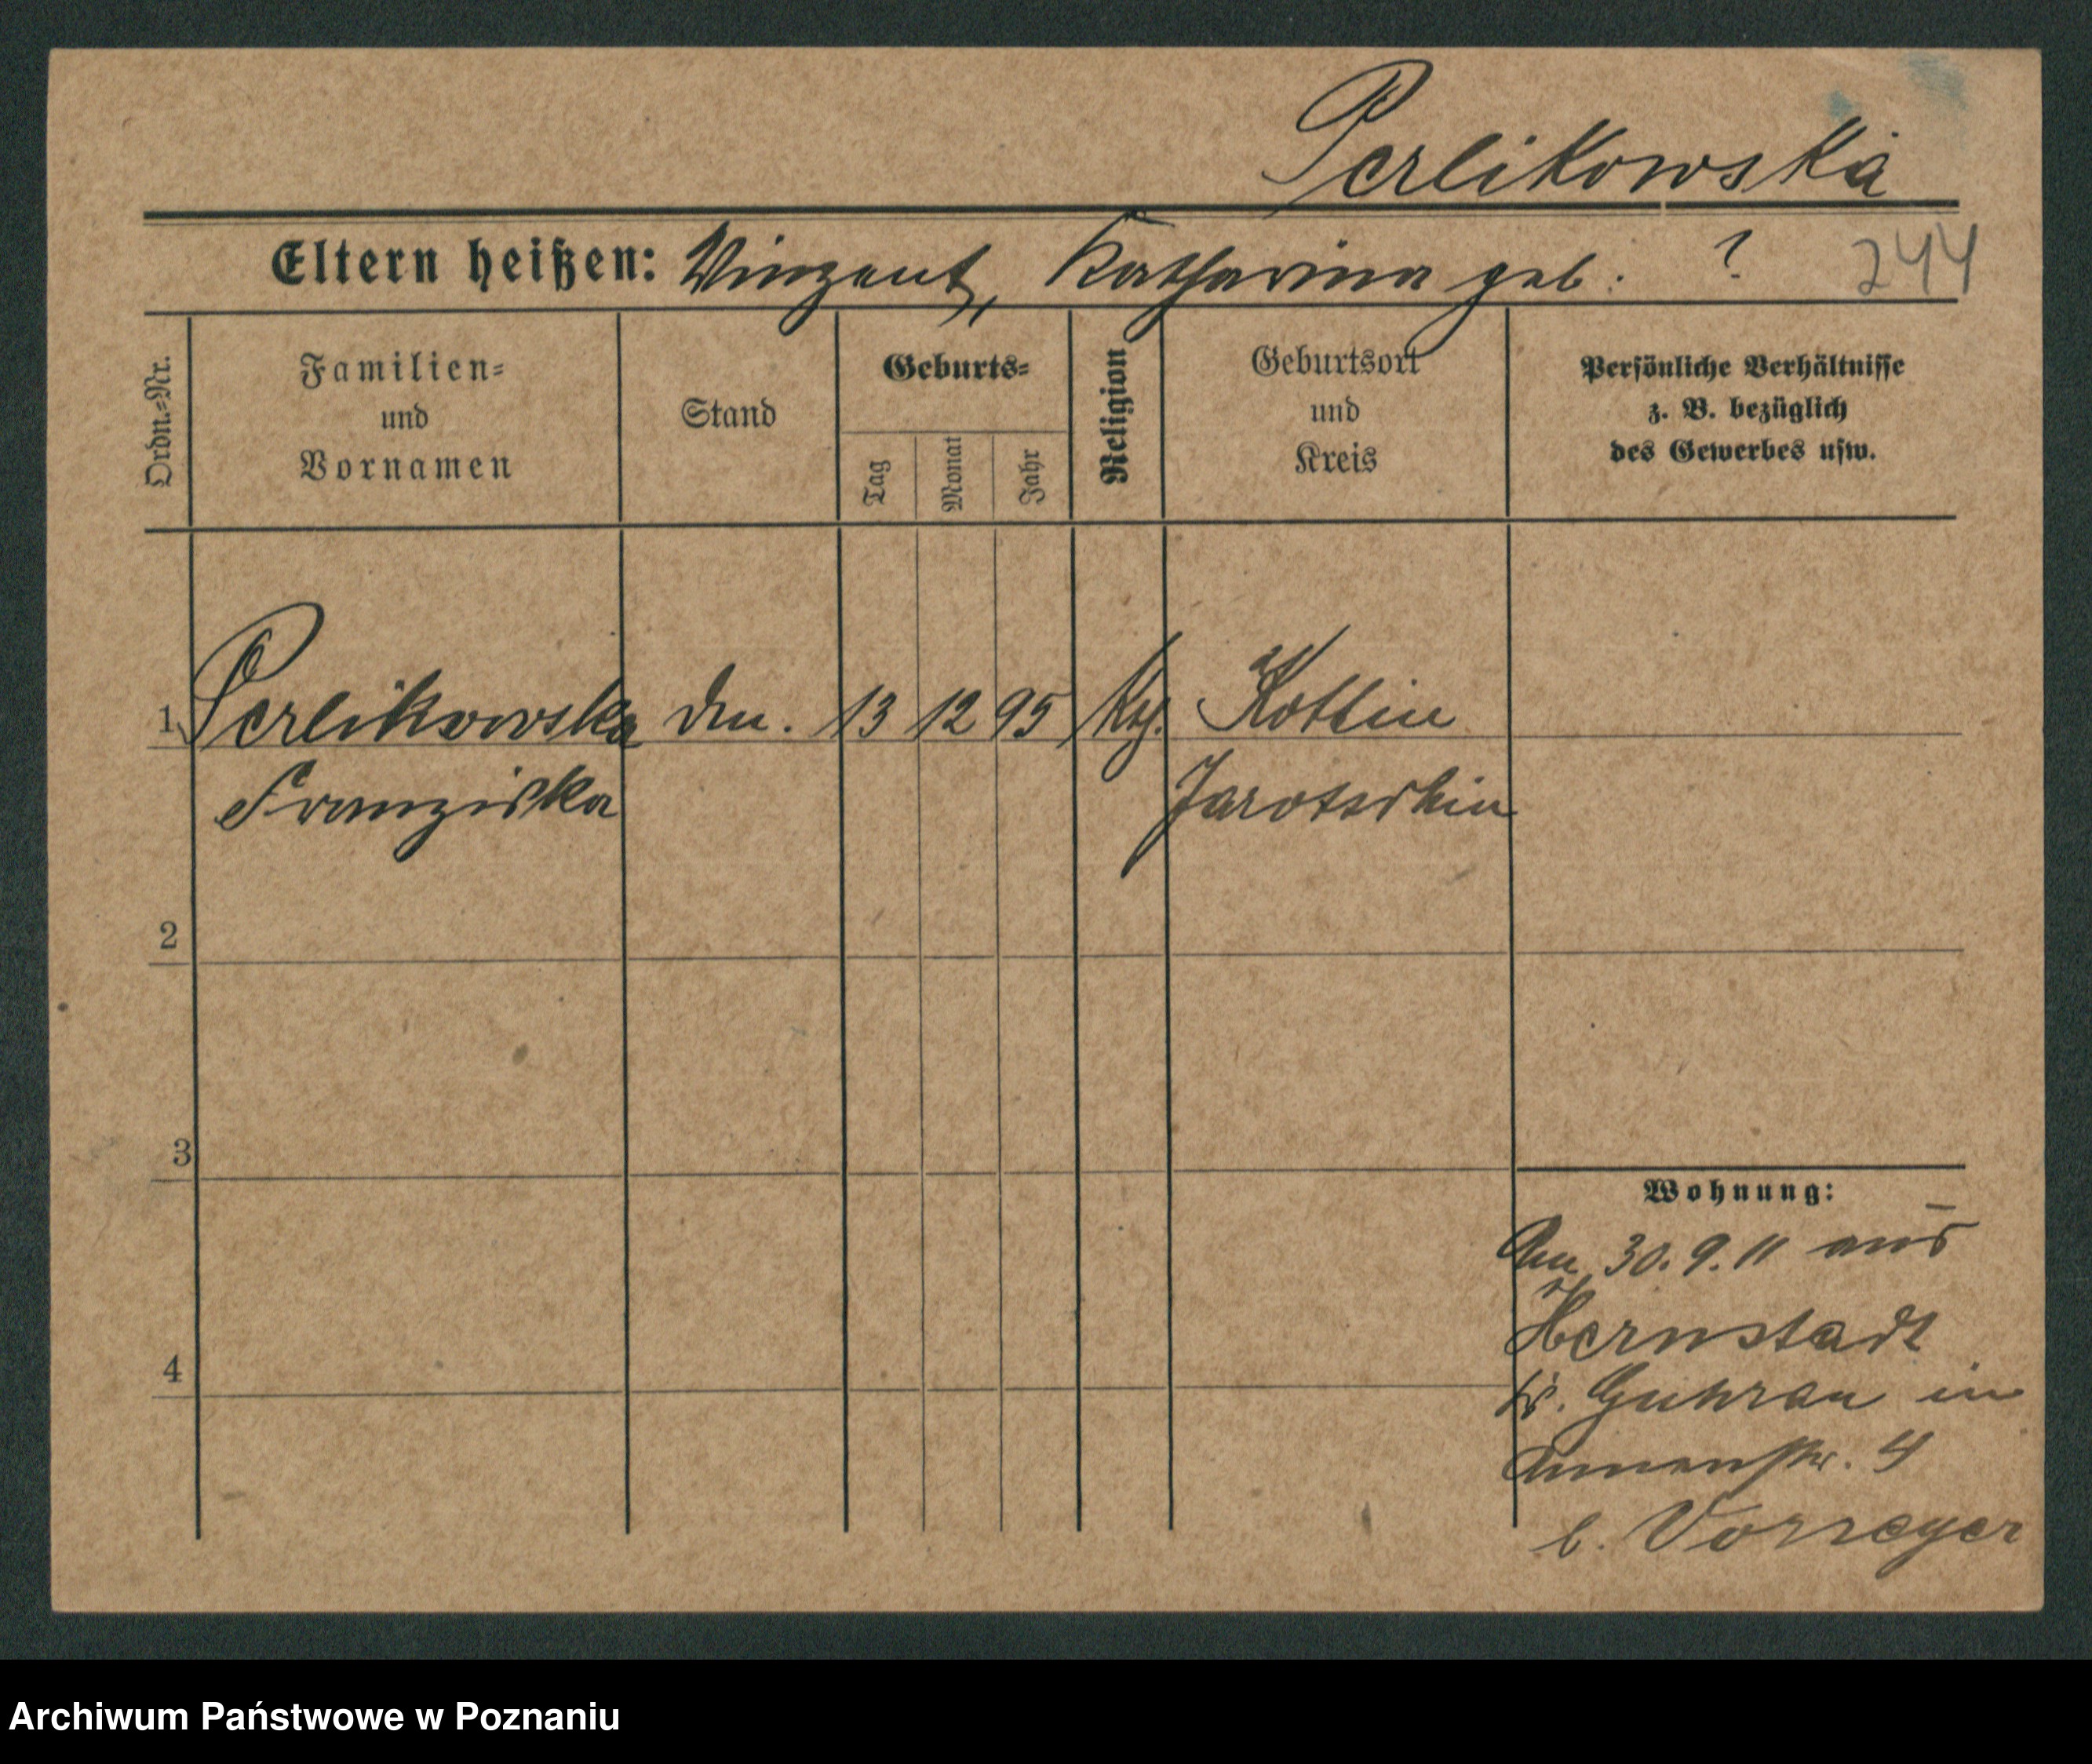 Perlikowska
Eltern heißen: Vinzent, Katharina geb. ?
244
Ordn.=Nr.
Familien=
und
Vornamen
Stand
Geburts=
Tag
Monat
Jahr
Religion
Geburtsort
und
Kreis
Persönliche Verhältnisse
z. B. bezüglich
des Gewerbes usw.
1 Perlikowska 13 12 95 Kth. Kotlin
Franziska Jarotschin
2
3
4
Wohnung:
Am 30. 9. 11 aus
Hernstadt
Kr. Guhrau in
Annenstr. 4
b. Vorreyer
Archiwum Państwowe w Poznaniu